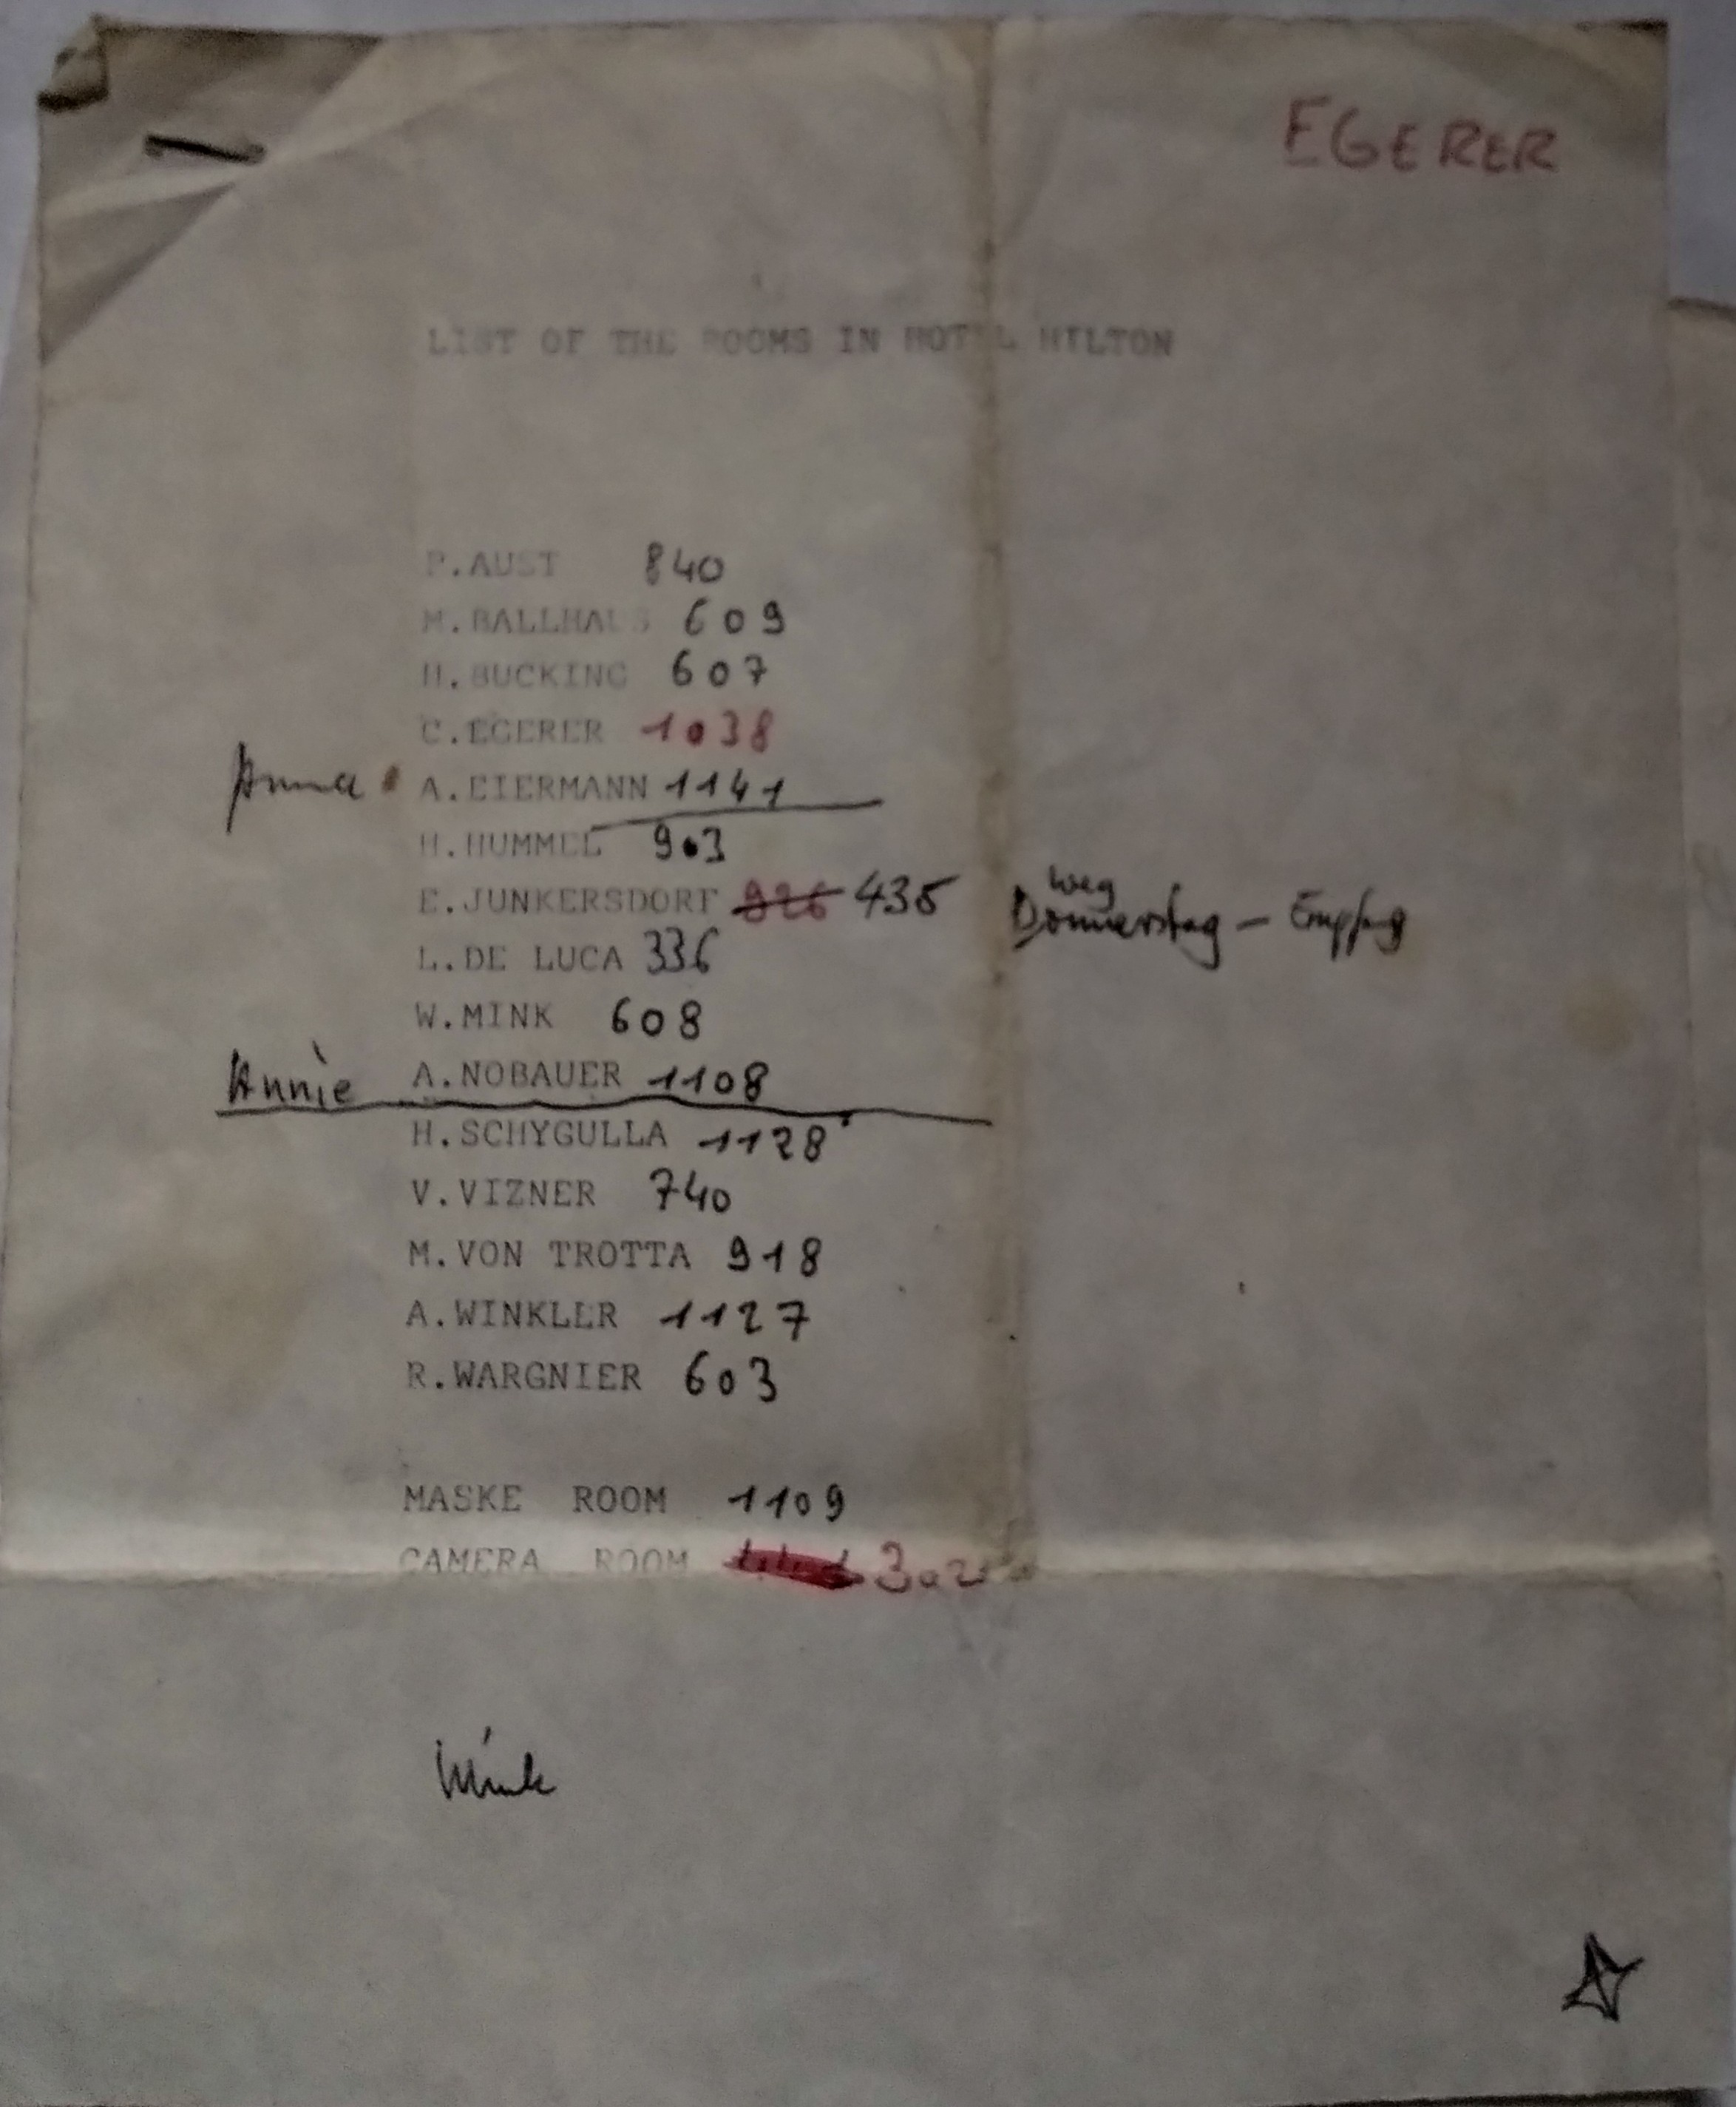 EGERER
LIST OF THE ROOMS IN HOTEL HILTON
P.AUST 840
M.BALLHAUS 609
H.BUCKING 607
C.EGERER 1038
Anna A.EIERMANN 1141
H.HUMMEL 903
weg
E.JUNKERSDORF 926 435 Donnerstag - Empfang
L.DE LUCA 336
W.MINK 608
Annie A.NOBAUER 1108
H.SCHYGULLA 1128
V.VIZNER 740
M.VON TROTTA 918
A.WINKLER 1127
R.WARGNIER 603
MASKE ROOM 1109
CAMERA ROOM
Mink